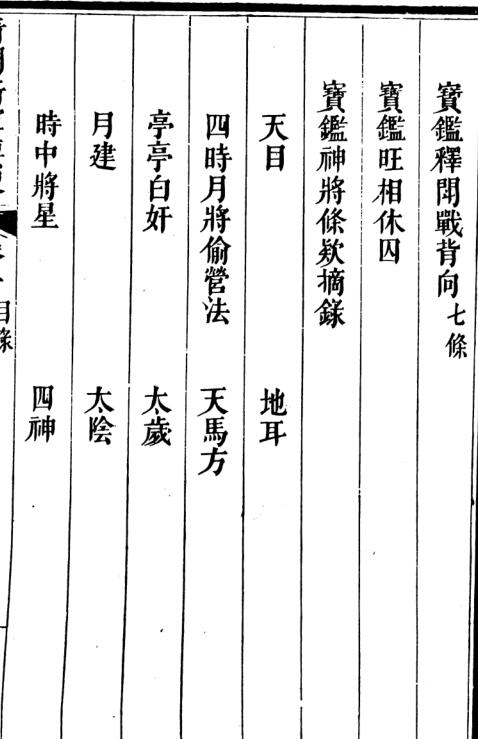 寶鑑釋閗戰背向七條
寶鑑旺相休囚
寶鑑神將條欵摘錄
天目 地耳
四時月將偷營法 天馬方
亭亭白奸 太歲
月建 太陰
時中將星 四神
目錄